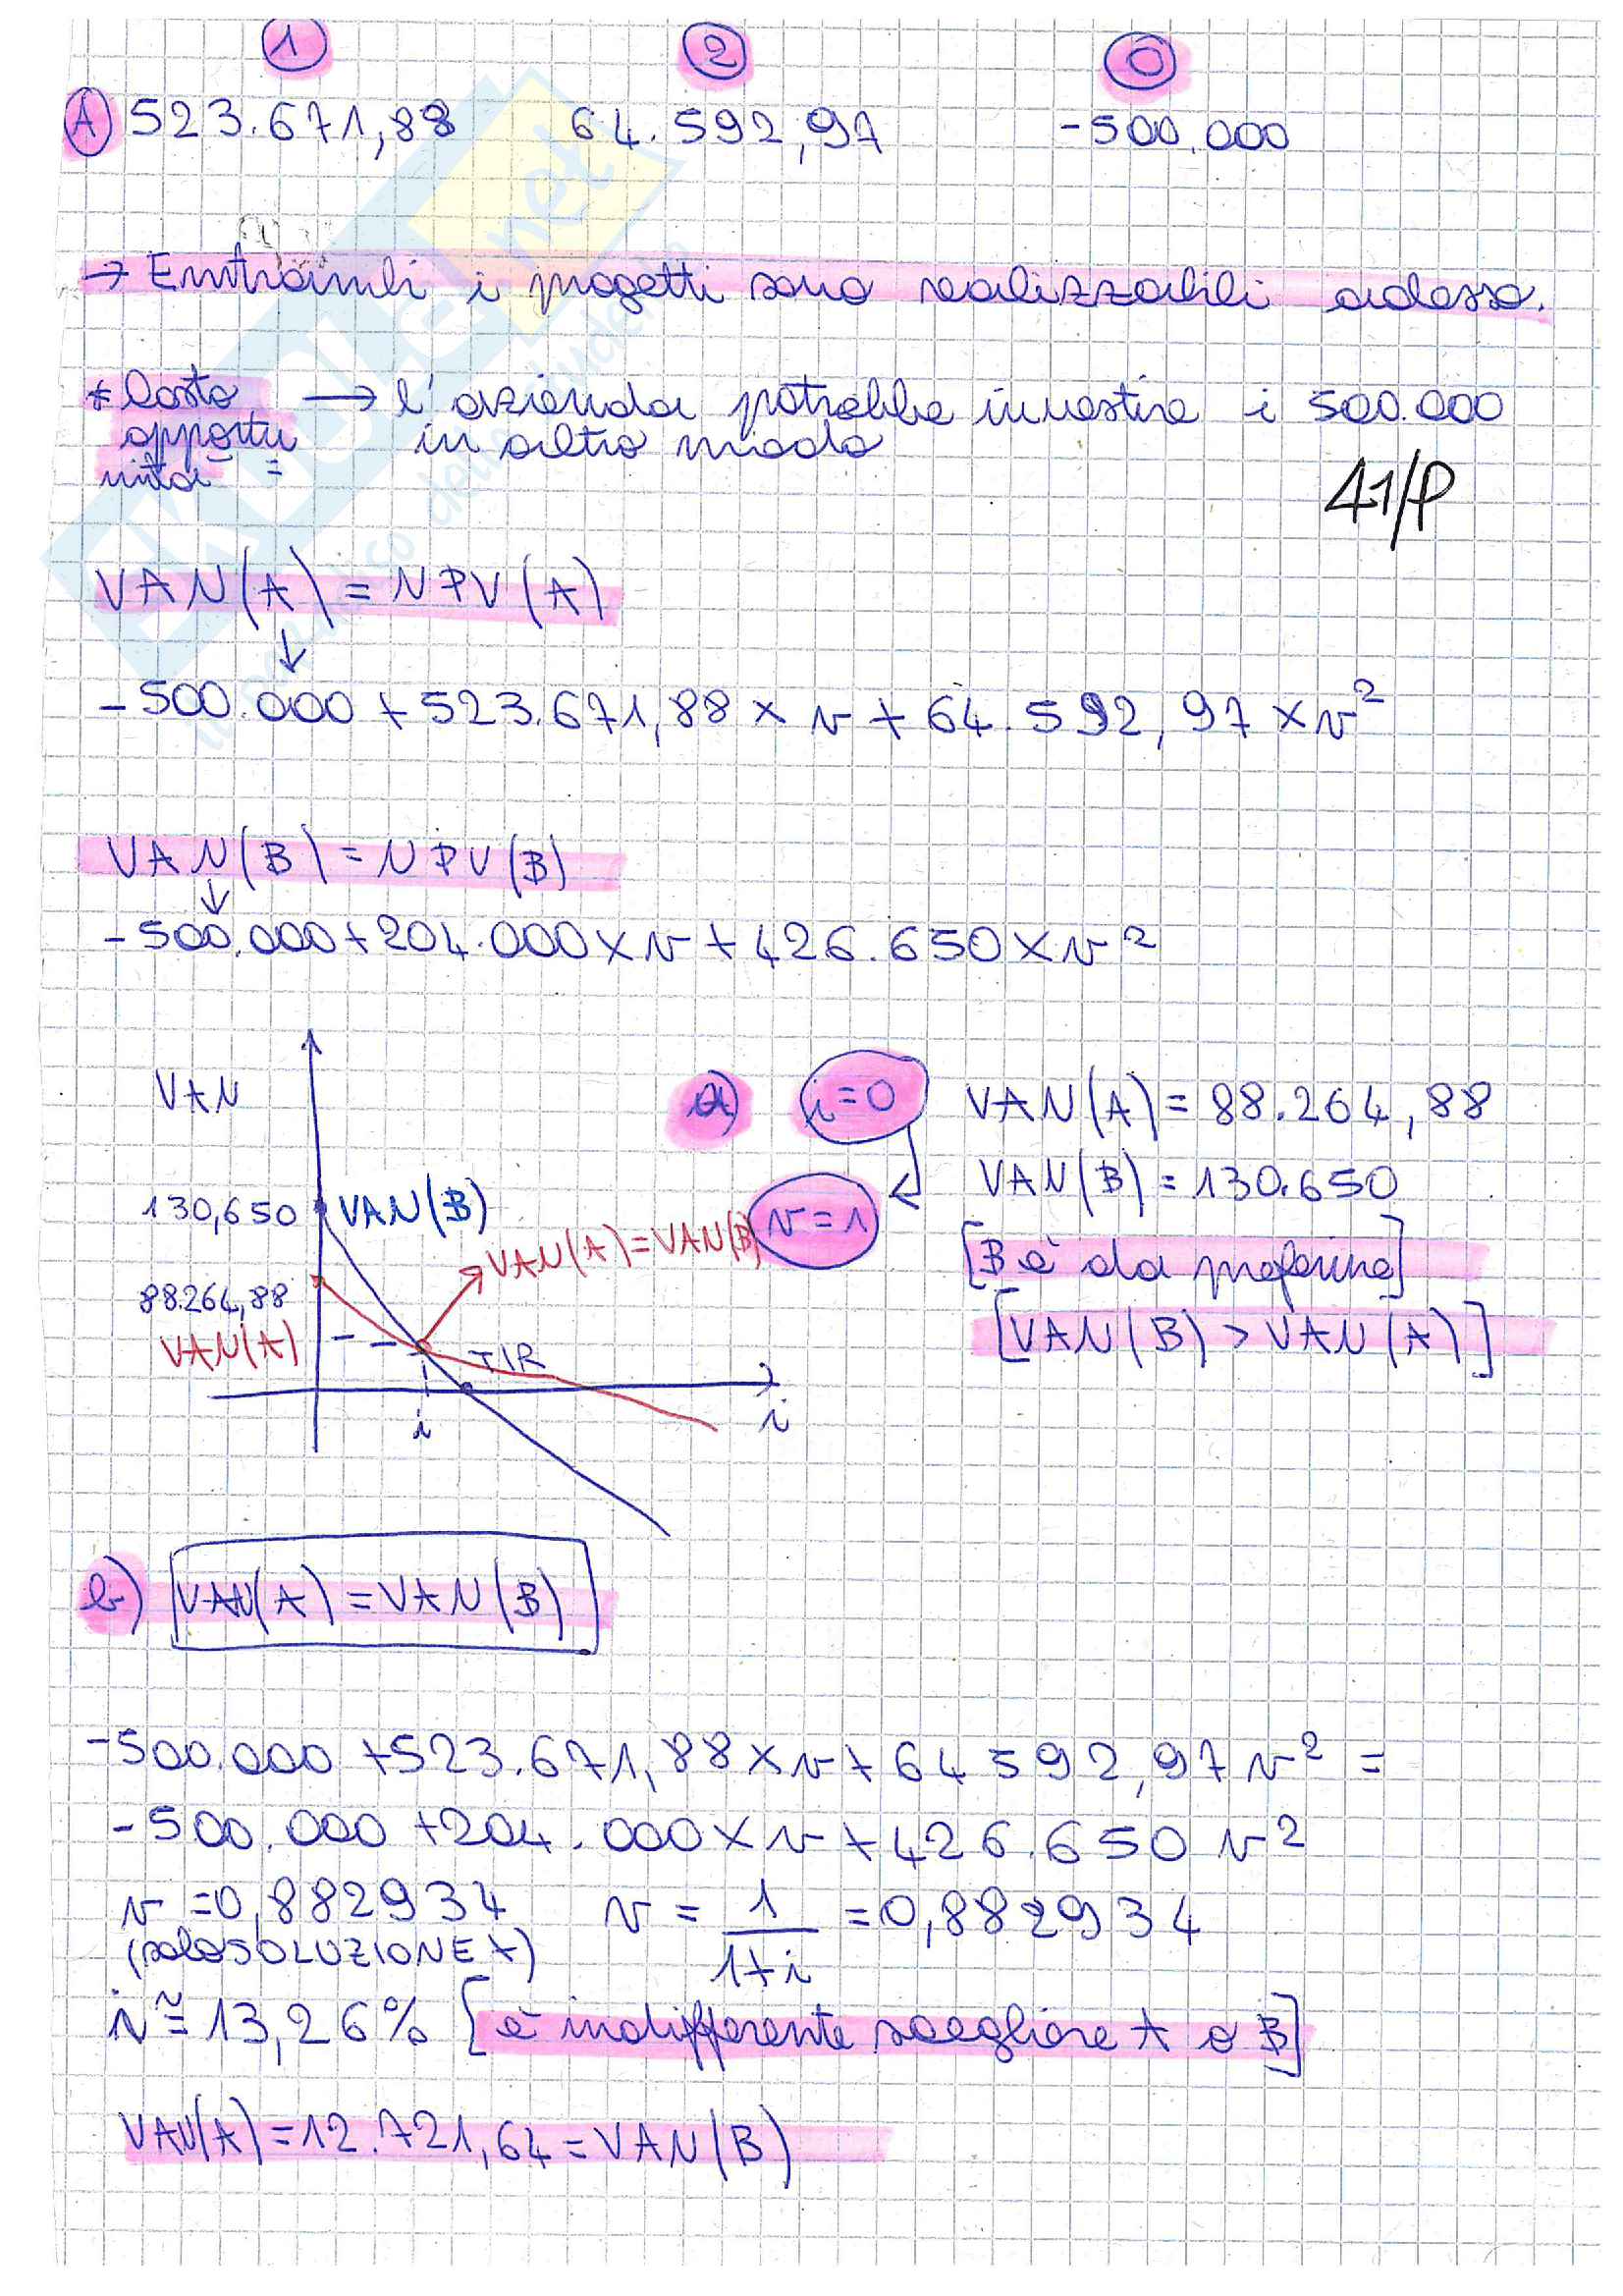 1 2 0
A 523.671,88 64.592,97 -500.000
→ Entrambi i progetti sono realizzabili adesso.
* Costo → l'azienda potrebbe investire i 500.000
opportu in altro modo
nità =
41/P
VAN(A) = NPV(A)
↓
-500.000 + 523.671,88 x v + 64.592,97 x v²
VAN(B) = NPV(B)
↓
-500.000 + 204.000 x v + 426.650 x v²
VAN
a) i=0 VAN(A) = 88.264,88
v=1 VAN(B) = 130.650
130,650 VAN(B)
VAN(A)=VAN(B)
[B è da preferire]
88.264,88
VAN(A)
[VAN(B) > VAN(A)]
TIR
i i
b) VAN(A) = VAN(B)
-500.000 + 523.671,88 x v + 64 592,97 v² =
-500.000 + 204.000 x v + 426.650 v²
v = 0,882934 v = 1/1+i = 0,882934
(solo SOLUZIONE +)
i ≅ 13,26% [è indifferente scegliere A o B]
VAN(A) = 12.721,64 = VAN(B)